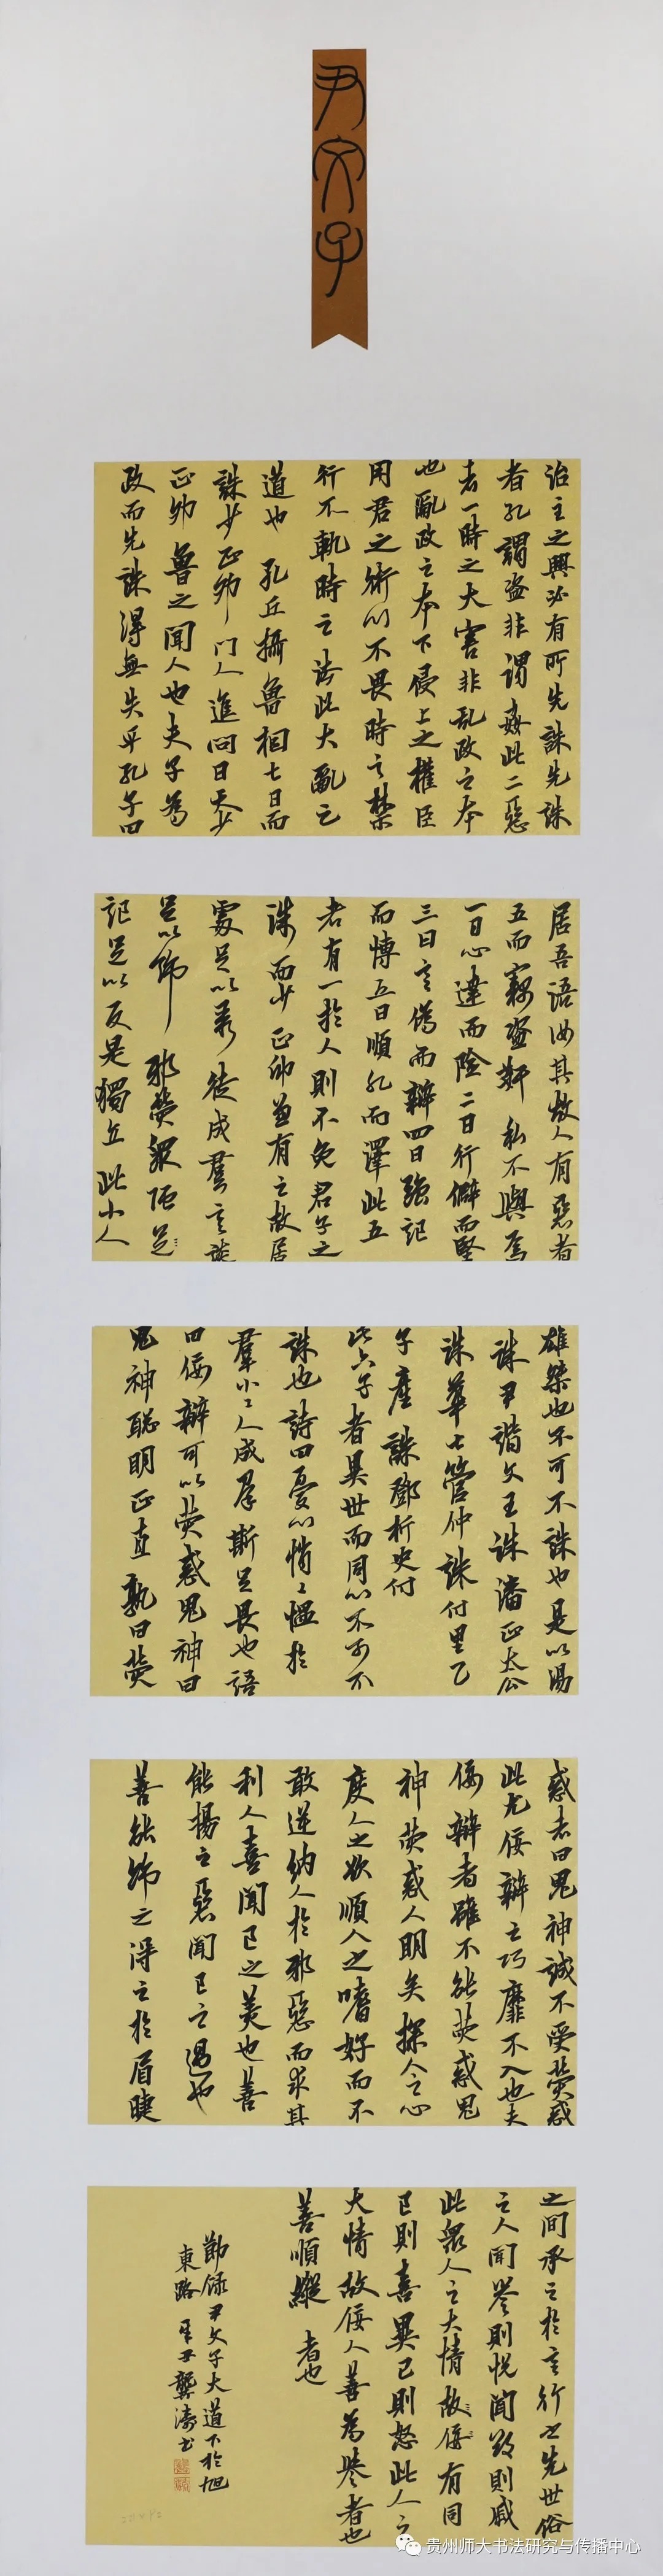 尹文子
治主之興必有所先誅先誅
者非謂盜非謂姦此二惡
者一時之大害非亂政之本
也亂政之本下侵上之權臣
用君之術心不畏時之禁
行不軌時之法此大亂之
道也孔丘攝魯相七日而
誅少正卯門人進問曰夫少
正卯魯之聞人也夫子為
政而先誅得無失乎孔子曰
居吾語汝其故人有惡者
五而竊盜姦私不與焉
一曰心達而險二曰行僻而堅
三曰言偽而辯四曰強記
而博五曰順非而澤此五
者有一於人則不免君子之
誅而少正卯兼有之故居
處足以聚徒成羣言談
足以飾邪熒衆強足
記足以反是獨立此小人
雄桀也不可不誅也是以湯
誅尹諧文王誅潘正太公
誅華士管仲誅付里乙
子產誅鄧析史付
此六子者異世而同心不可不
誅也詩曰憂心悄悄慍於
羣小小人成羣斯足畏也語
曰佞辯可以熒惑鬼神曰
鬼神聰明正直孰曰熒
惑者曰鬼神誠不受熒惑
此尤佞辯之巧靡不入也夫
佞辯者雖不能熒惑鬼
神熒惑人明矣探人之心
度人之欲順人之嗜好而不
敢逆納人於邪惡而求其
利人喜聞己之美也善
能揚之惡聞己之過也
善能飾之得之於眉睫
之間承之於言行之先世俗
之人聞譽則悅聞毀則戚
此衆人之大情故佞有同
己則喜異己則怒此人之
大情故佞人善為譽者也
善順從者也
節錄尹文子大道下於旭
東路 龔濤書
贵州师大书法研究与传播中心